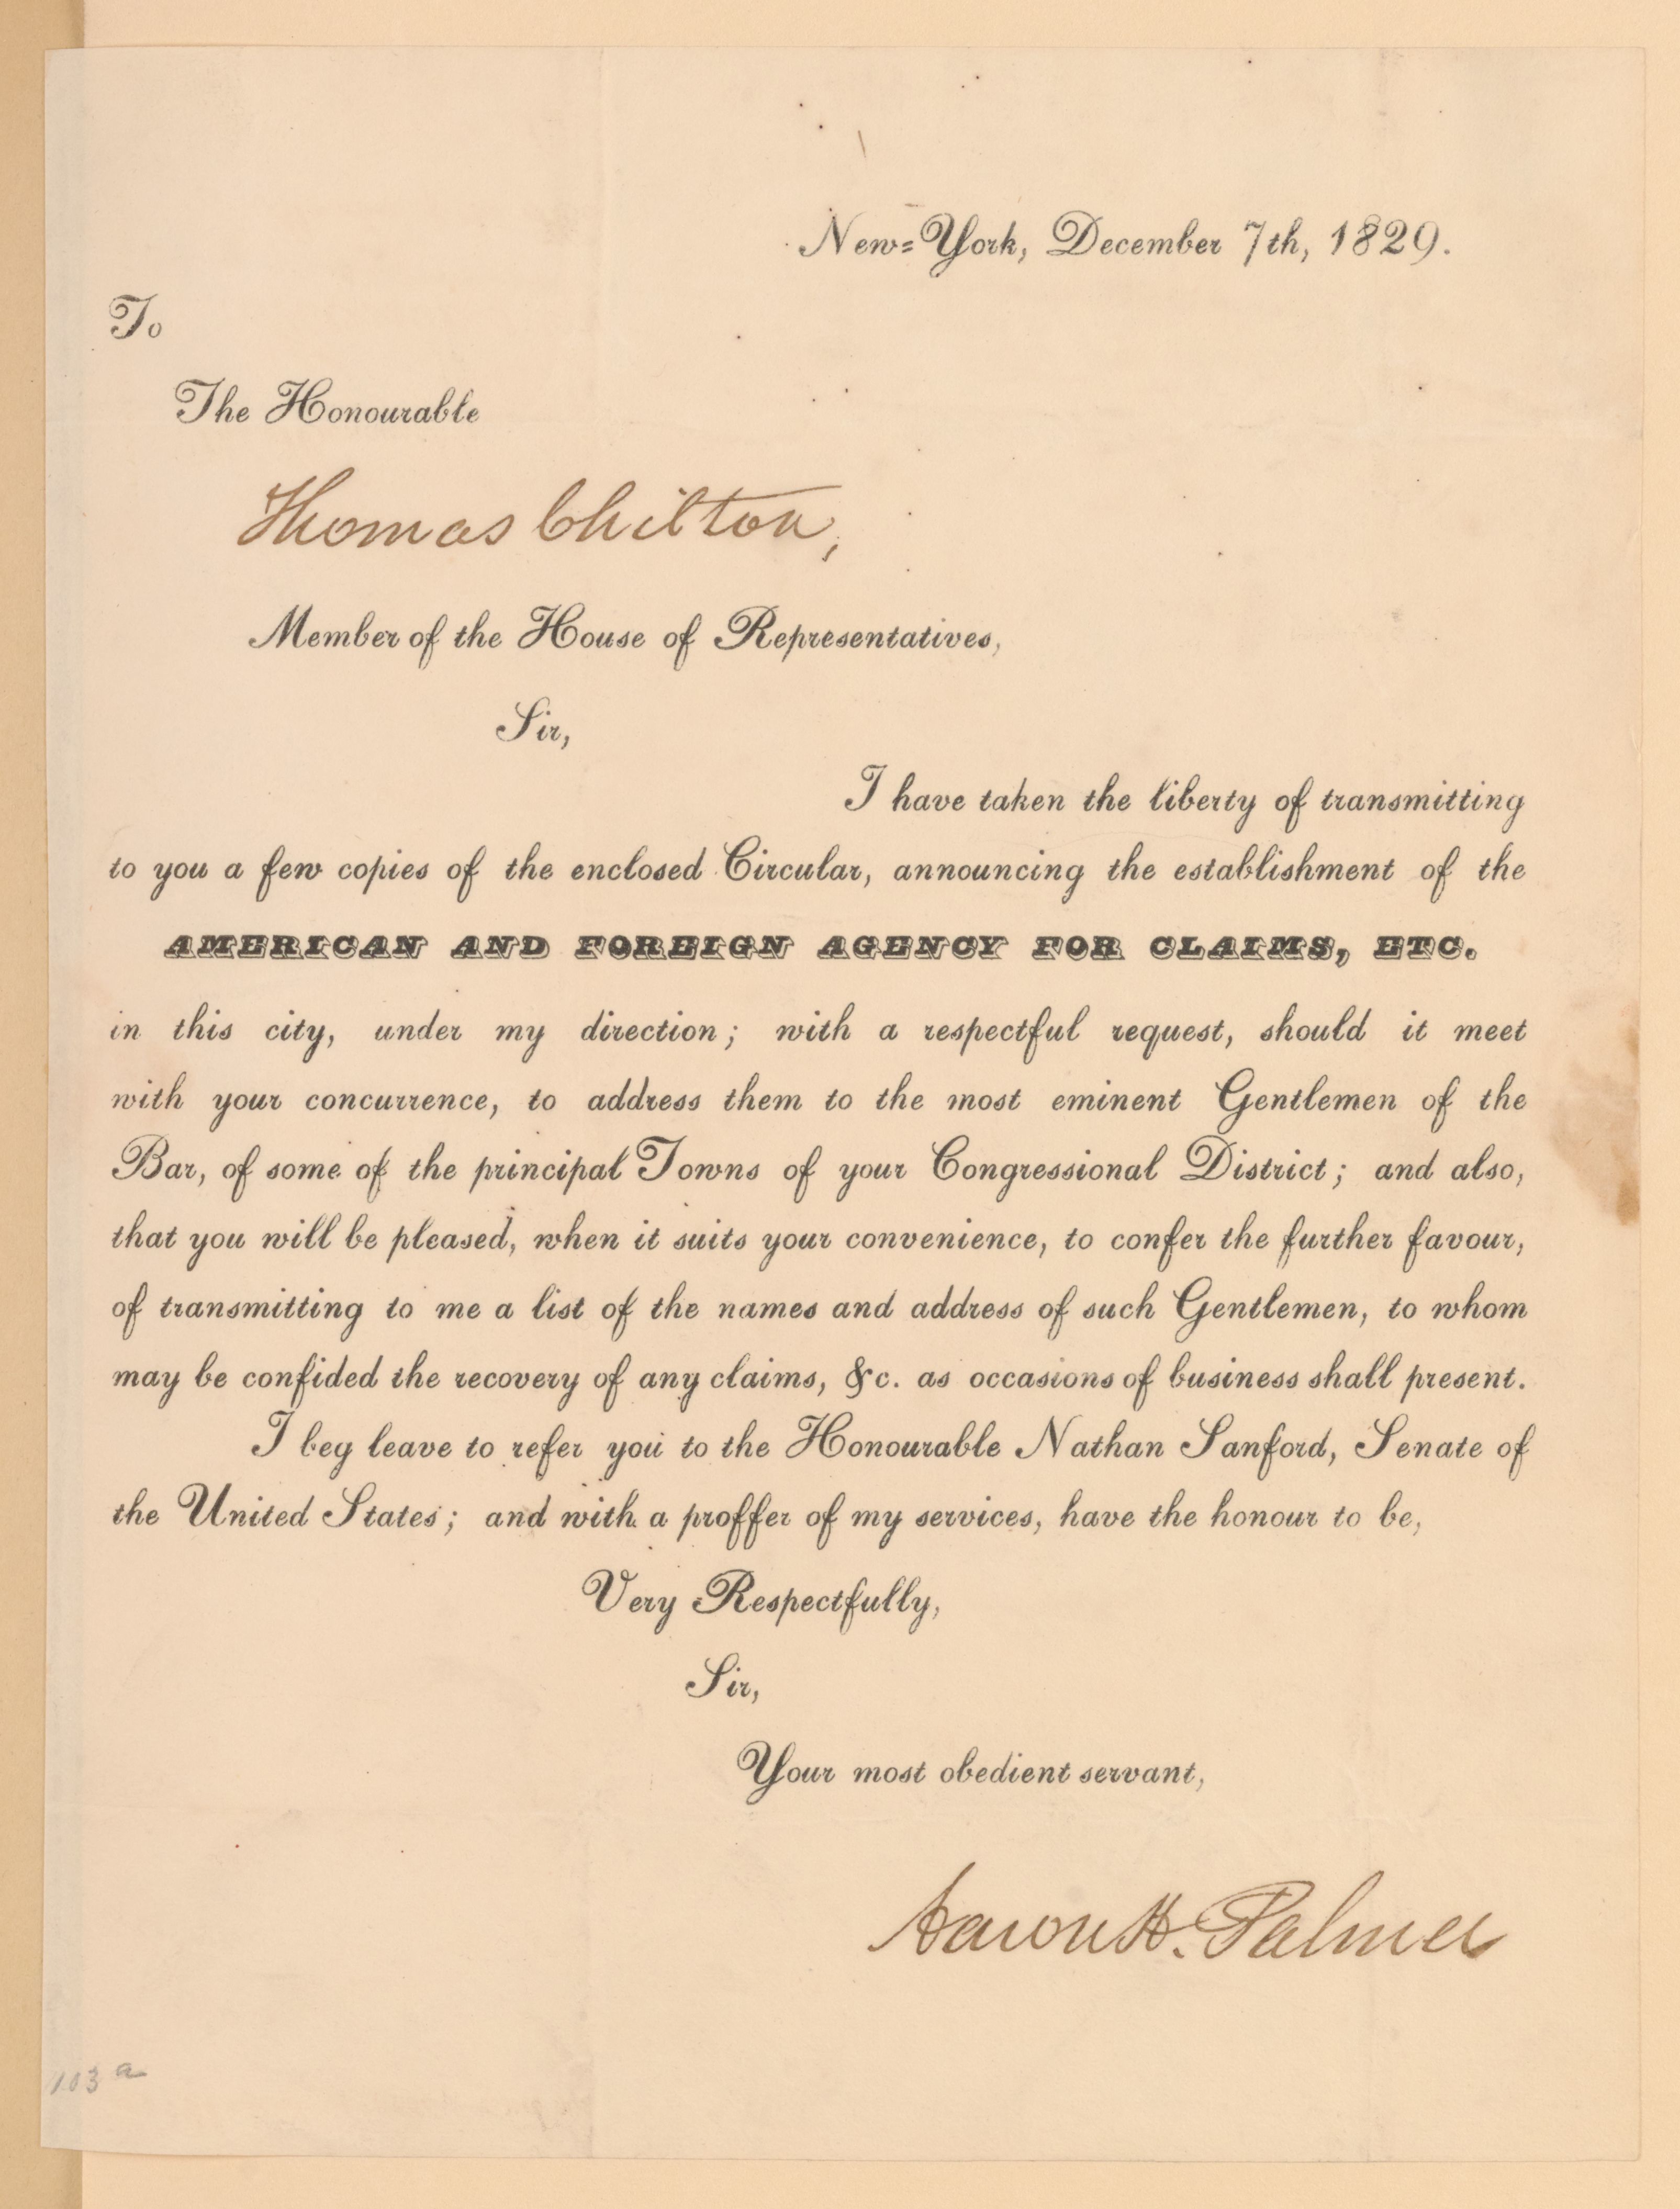 New=York, December 7th, 1829.
To
The Honourable
Thomas Chilton,
Member of the House of Representatives,
Sir,
I have taken the liberty of transmitting
to you a few copies of the enclosed Circular, announcing the establishment of the
AMERICAN AND FOREIGN AGENCY FOR CLAIMS, ETC.
in this city, under my direction; with a respectful request, should it meet
with your concurrence, to address them to the most eminent Gentlemen of the
Bar, of some of the principal Towns of your Congressional District; and also,
that you will be pleased, when it suits your convenience, to confer the further favour,
of transmitting to me a list of the names and address of such Gentlemen, to whom
may be confided the recovery of any claims, &c. as occasions of business shall present.
I beg leave to refer you to the Honourable Nathan Sanford, Senate of
the United States; and with a proffer of my services, have the honour to be,
Very Respectfully,
Sir,
Your most obedient servant,
Aaron H. Palmer
103 a